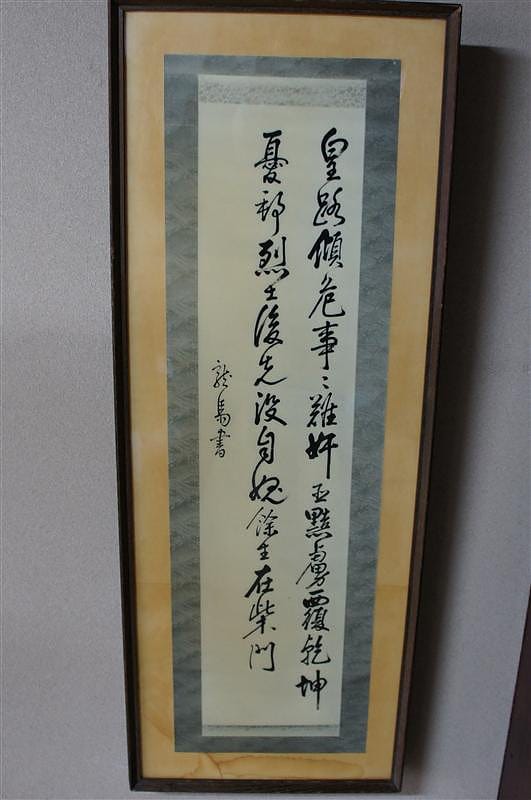 皇路傾危事〻難奸臣黠虜覆乾坤
憂邦烈士後先没自愧餘生在柴門
龍馬書